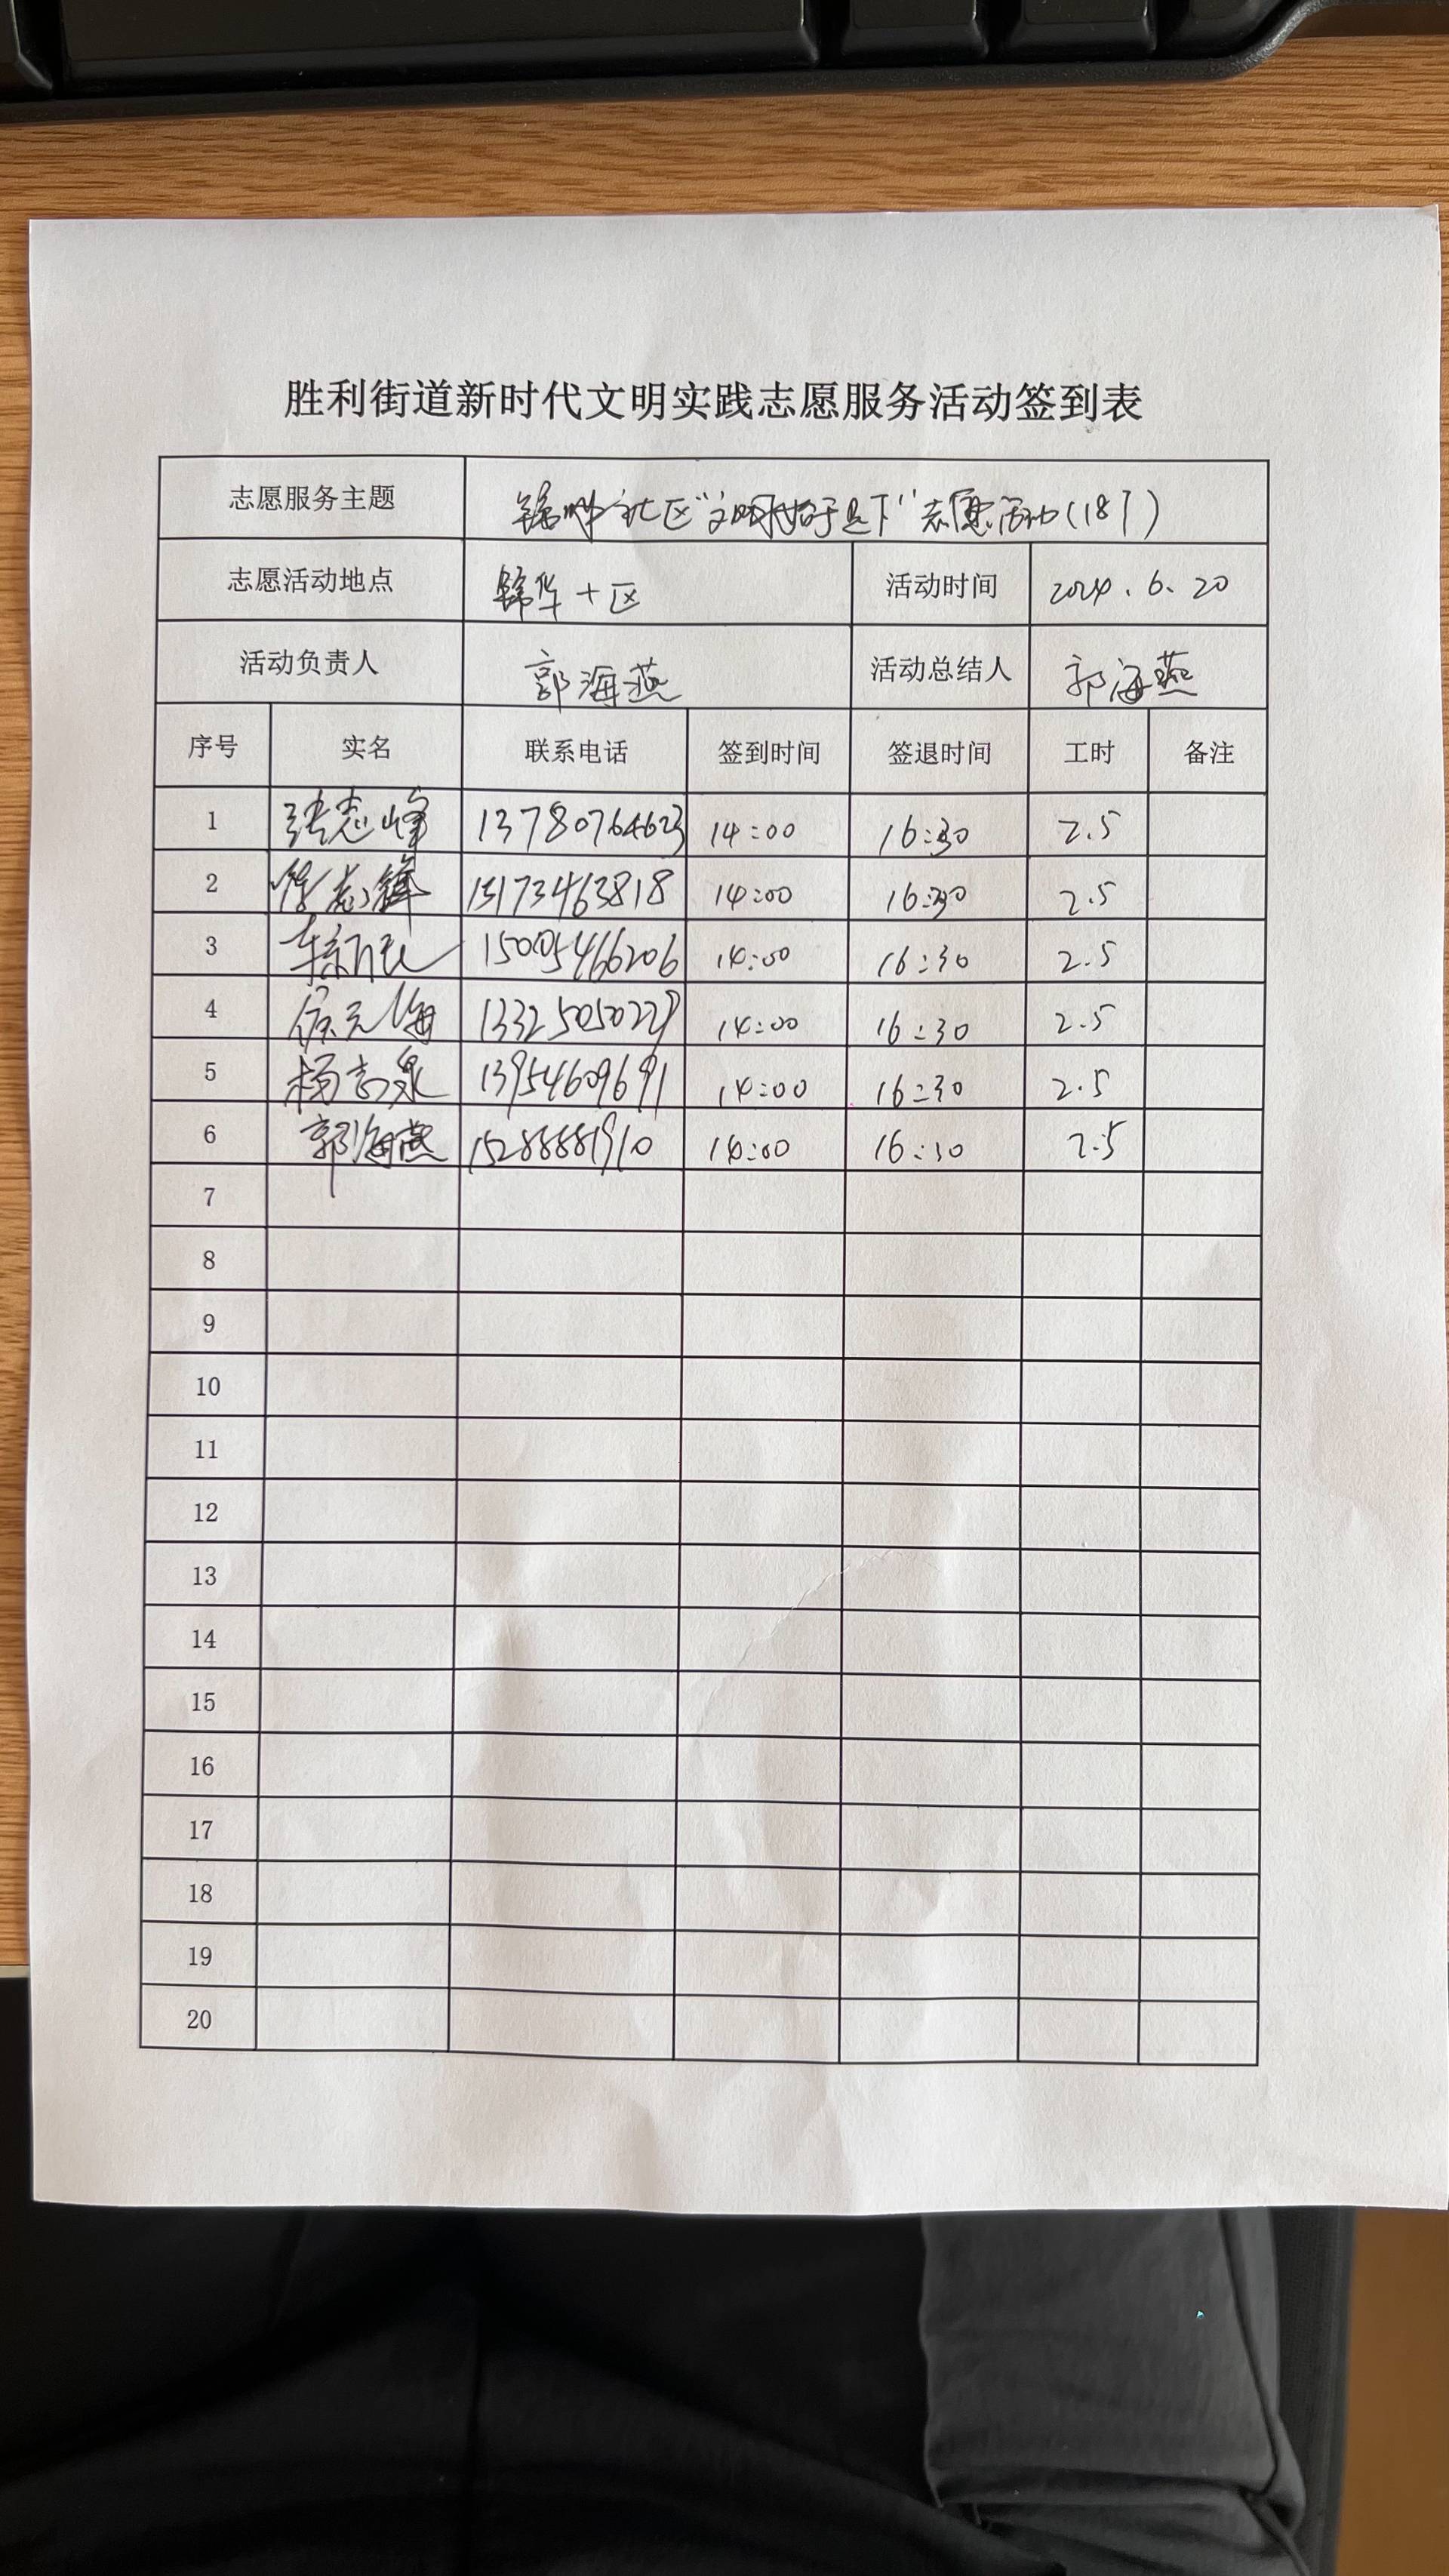 胜利街道新时代文明实践志愿服务活动签到表
志愿服务主题 锦华社区“文明始于足下”志愿活动(18)
志愿活动地点 锦华十区 活动时间 2024.6.20
活动负责人 郭海燕 活动总结人 郭海燕
序号 实名 联系电话 签到时间 签退时间 工时 备注
1 张志峰 13780764623 14:00 16:30 2.5
2 徐志锋 15173463818 14:00 16:30 2.5
3 15005466206 14:00 16:30 2.5
4 侯元海 14:00 16:30 2.5
5 杨志泉 13954609691 14:00 16:30 2.5
6 郭海燕 15288881910 14:00 16:30 2.5
7
8
9
10
11
12
13
14
15
16
17
18
19
20